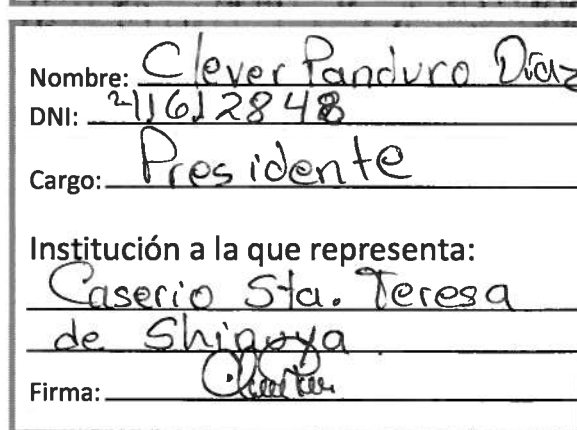 Nombre: Clever Panduro Díaz
DNI: 21612848
Cargo: Presidente
Institución a la que representa:
Caserio Sta. Teresa
de
Firma: